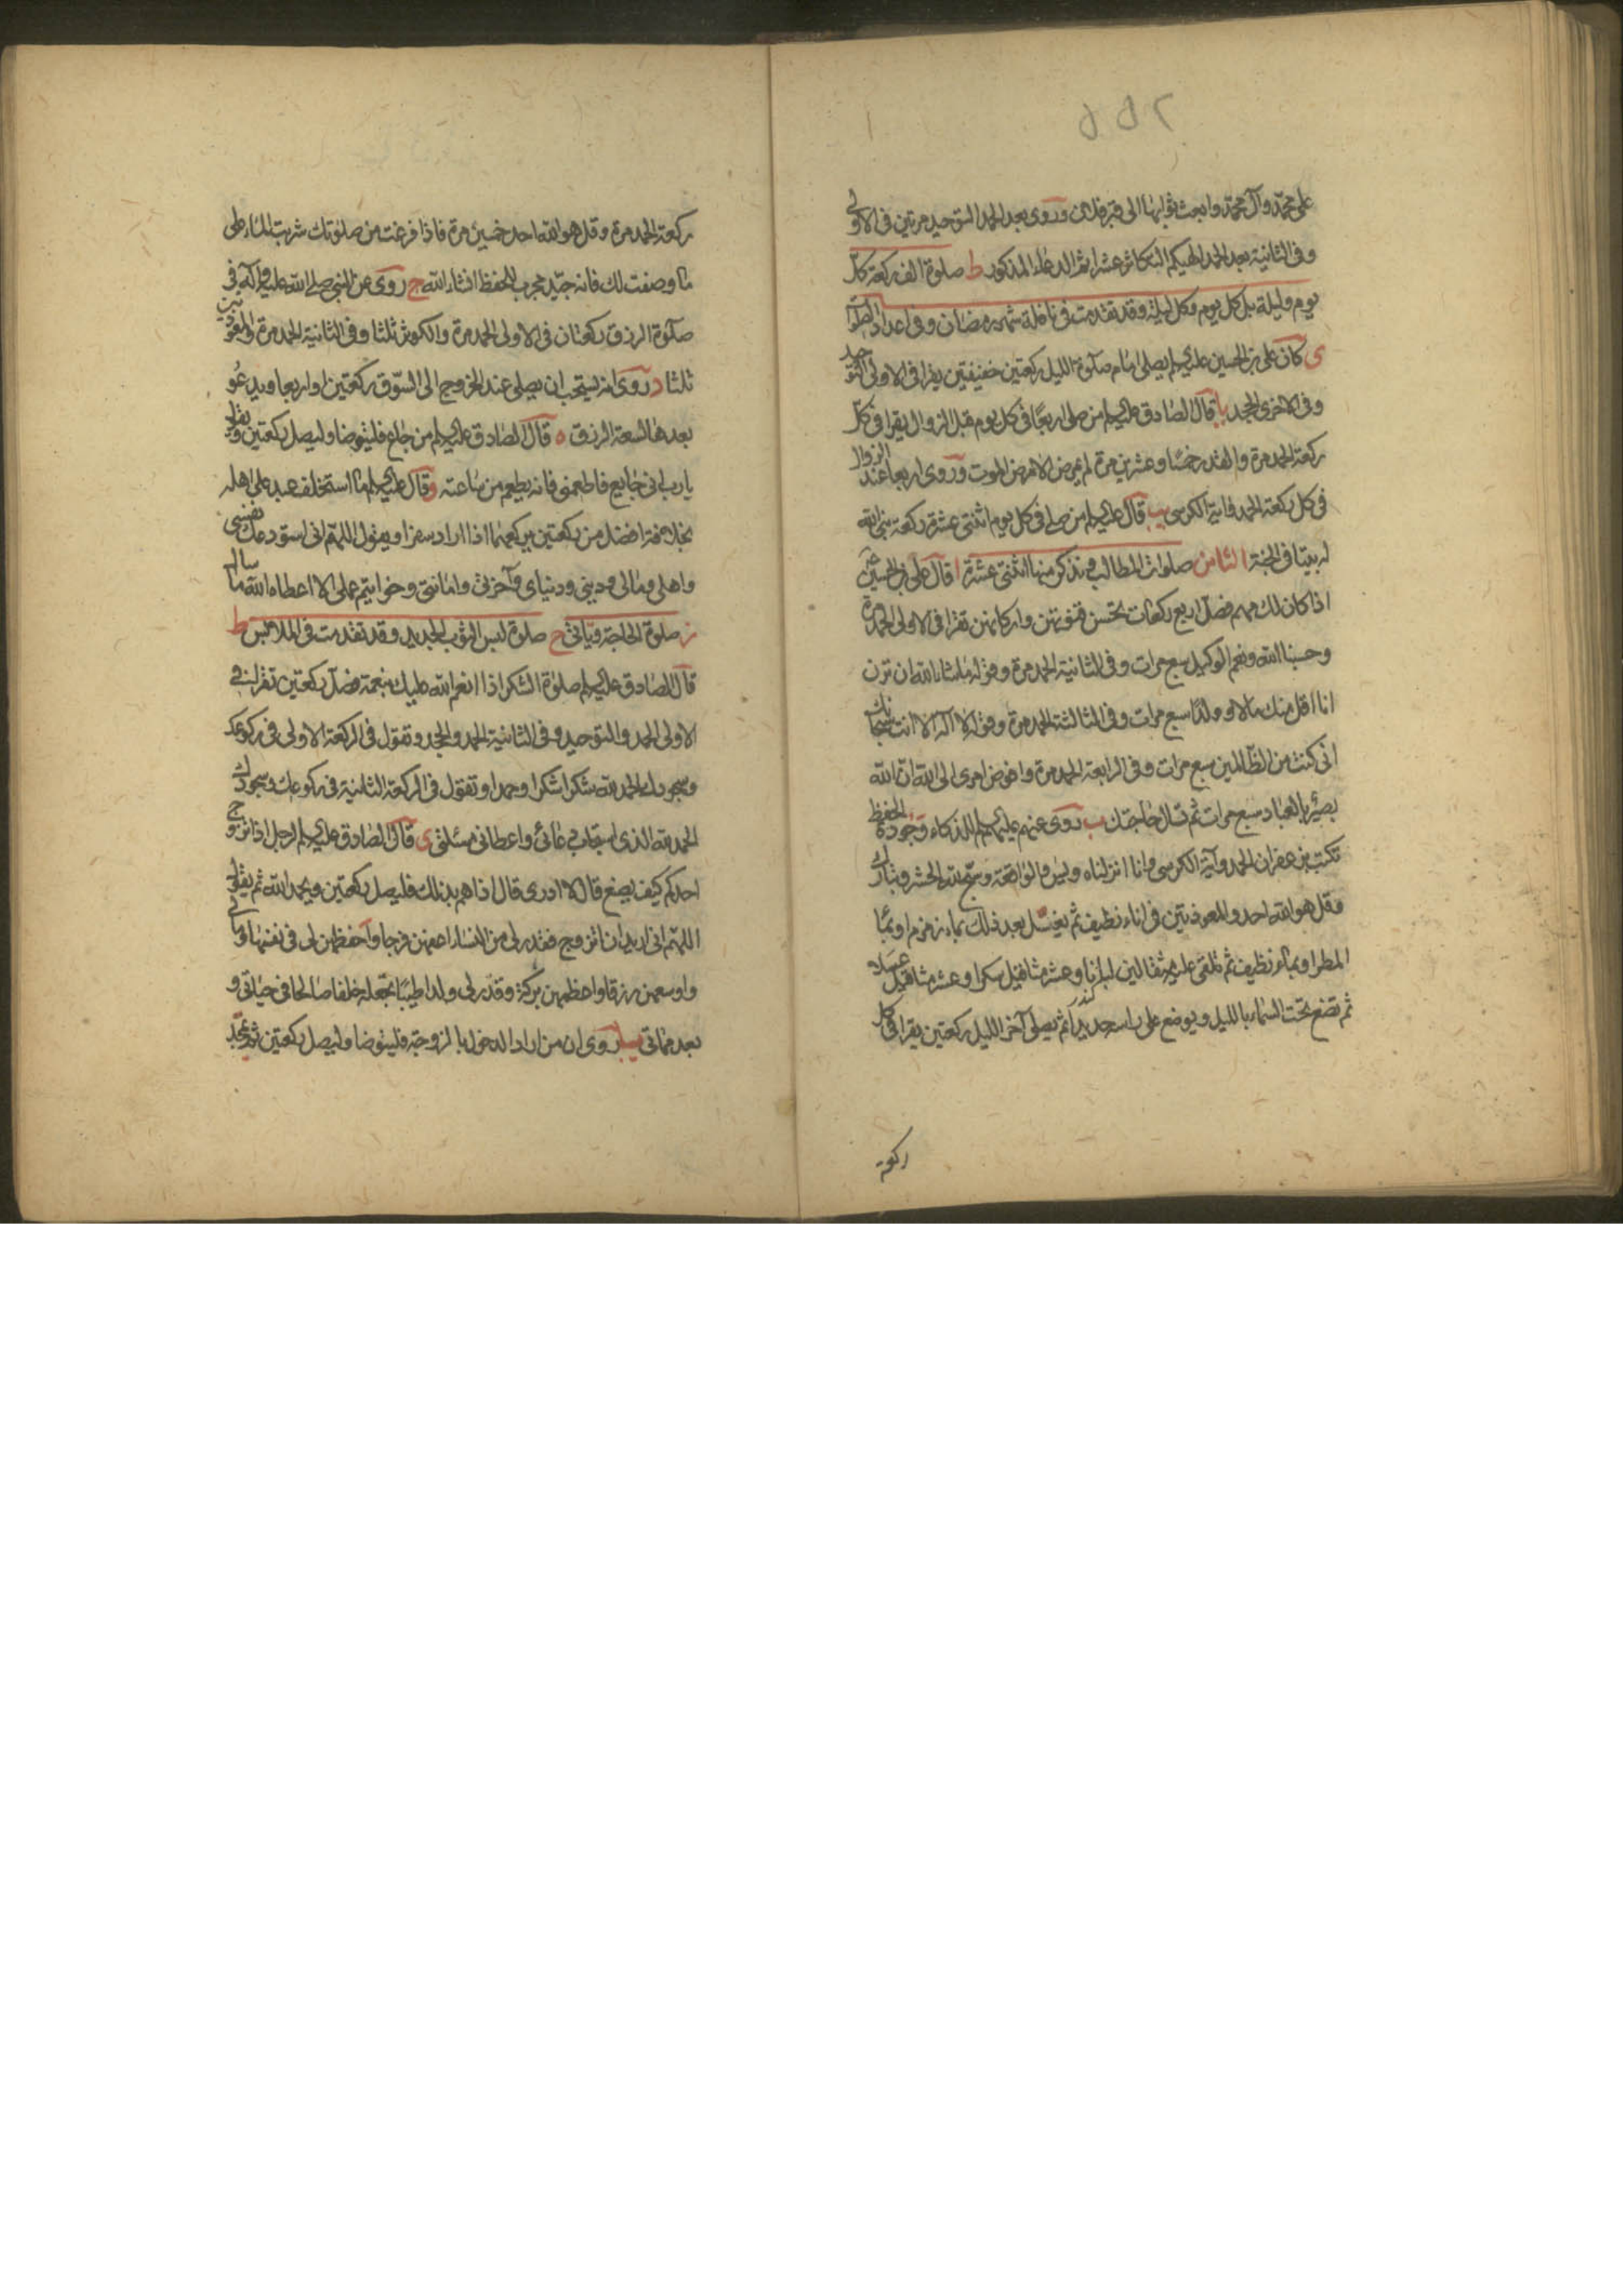 على محمد وآل محمد وابعث ثوابها الى قبر فلان وروى بعد الحمد التوحيد مرتين فى الاولى
وفى الثانية بعد الحمد الهيكم التكاثر عشرا ثم الدعاء المذكور ط صلوة الف ركعة كل
يوم وليلة بل كل يوم وكل ليلة وقد تقدمت فى نافلة شهر رمضان وفى اعداد الصلوات
ى كان على بن الحسين عليه السلم يصلى امام صلوة الليل ركعتين خفيفتين يقرا فى الاولى التوحيد
وفى الاخرى الجحد يا قال الصادق عليه السلم من صلى اربعا فى كل يوم قبل الزوال يقرا فى كل
ركعة الحمد مرة والقدر خمسا وعشرين مرة لم يمرض الا مرض الموت وروى اربعا عند الزوال
فى كل ركعة الحمد وآية الكرسى يب قال عليه السلم من صلى فى كل يوم اثنتى عشرة ركعة بنى الله
له بيتا فى الجنة الثامن صلوات المطالب ونذكر منها اثنتى عشرة ا قال على بن الحسين
اذا كان لك مهم فصل اربع ركعات تحسن قنوتهن واركانهن تقرا فى الاولى الحمد مرة
وحسبنا الله ونعم الوكيل سبع مرات وفى الثانية الحمد مرة وقوله ما شاء الله ان ترن
انا اقل منك مالا وولدا سبع مرات وفى الثالثة الحمد مرة وقوله لا اله الا انت سبحانك
انى كنت من الظالمين سبع مرات وفى الرابعة الحمد مرة وافوض امرى الى الله ان الله
بصير بالعباد سبع مرات ثم تسال حاجتك ب روى عنهم عليهم السلم للذكاء وجودة الحفظ
تكتب بزعفران الحمد وآية الكرسى وانا انزلناه ويس والواقعة وسبح لله الحشر وتبارك
وقل هو الله احد والمعوذتين فى اناء نظيف ثم يغسل بعد ذلك بماء زمزم او بماء
المطر او بماء نظيف ثم تلقى عليه مثقالين لبانا وعشر مثاقيل سكرا وعشر مثاقيل عسلا
ثم تضع تحت السماء بالليل ويوضع على راسه حديد ثم يصلى آخر الليل ركعتين يقرا فى كل
ركعة
ركعة الحمد مرة وقل هو الله احد خمسين مرة فاذا فرغت من صلوتك شربت الماء على
ما وصفت لك فانه جيد مجرب للحفظ انشاء الله ج روى عن النبى صلى الله عليه وآله فى
صلوة الرزق ركعتان فى الاولى الحمد مرة والكوثر ثلثا وفى الثانية الحمد مرة والمعوذتين
ثلثا د روى انه يستحب ان يصلى عند الخروج الى السوق ركعتين او اربعا ويدعو
بعدها لسعة الرزق ه قال الصادق عليه السلم من جاع فليتوضا وليصل ركعتين ويقول
يارب انى جايع فاطعمنى فانه يطعم من ساعته و قال عليه السلم ما استخلف عبد على اهله
بخلافة افضل من ركعتين يركعهما اذا اراد سفرا ويقول اللهم انى استودعك نفسى
واهلى ومالى ودينى ودنياى وآخرتى وامانتى وخواتيم عملى الا اعطاه الله ما سال
ز صلوة الحاجة وياتى ح صلوة لبس الثوب الجديد وقد تقدمت فى الملابس ط
قال الصادق عليه السلم صلوة الشكر اذا انعم الله عليك بنعمة فصل ركعتين تقرا فى
الاولى الحمد والتوحيد وفى الثانية الحمد والجحد وتقول فى الركعة الاولى فى ركوعك
وسجودك الحمد لله شكرا شكرا وحمدا وتقول فى الركعة الثانية فى ركوعك وسجودك
الحمد لله الذى استجاب دعائى واعطانى مسئلتى ى قال الصادق عليه السلم لرجل اذا تزوج
احدكم كيف يصنع قال لا ادرى قال اذا هم بذلك فليصل ركعتين ويحمد الله ثم يقول
اللهم انى اريد ان اتزوج فقدر لى من النساء اعفهن فرجا واحفظهن لى فى نفسها ومالى
واوسعهن رزقا واعظمهن بركة وقدر لى ولدا طيبا تجعله خلفا صالحا فى حياتى و
بعد مماتى يا روى ان من اراد الدخول بالزوجة فليتوضا وليصل ركعتين ثم يمجد